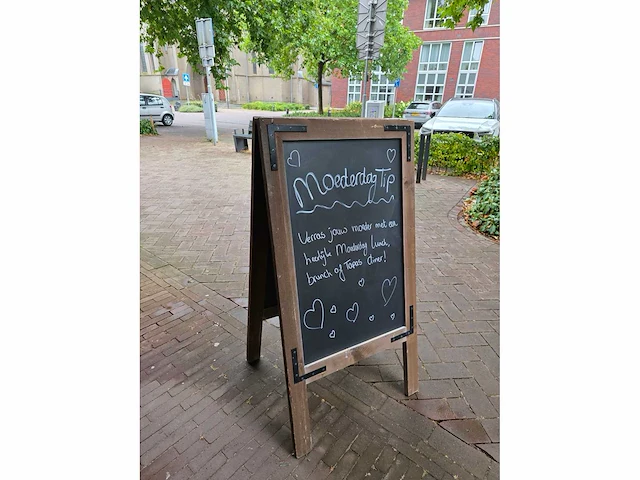 Moederdag Tip
Verras jouw moeder met een
heerlijke Moederdag Lunch,
brunch of Tapas diner!